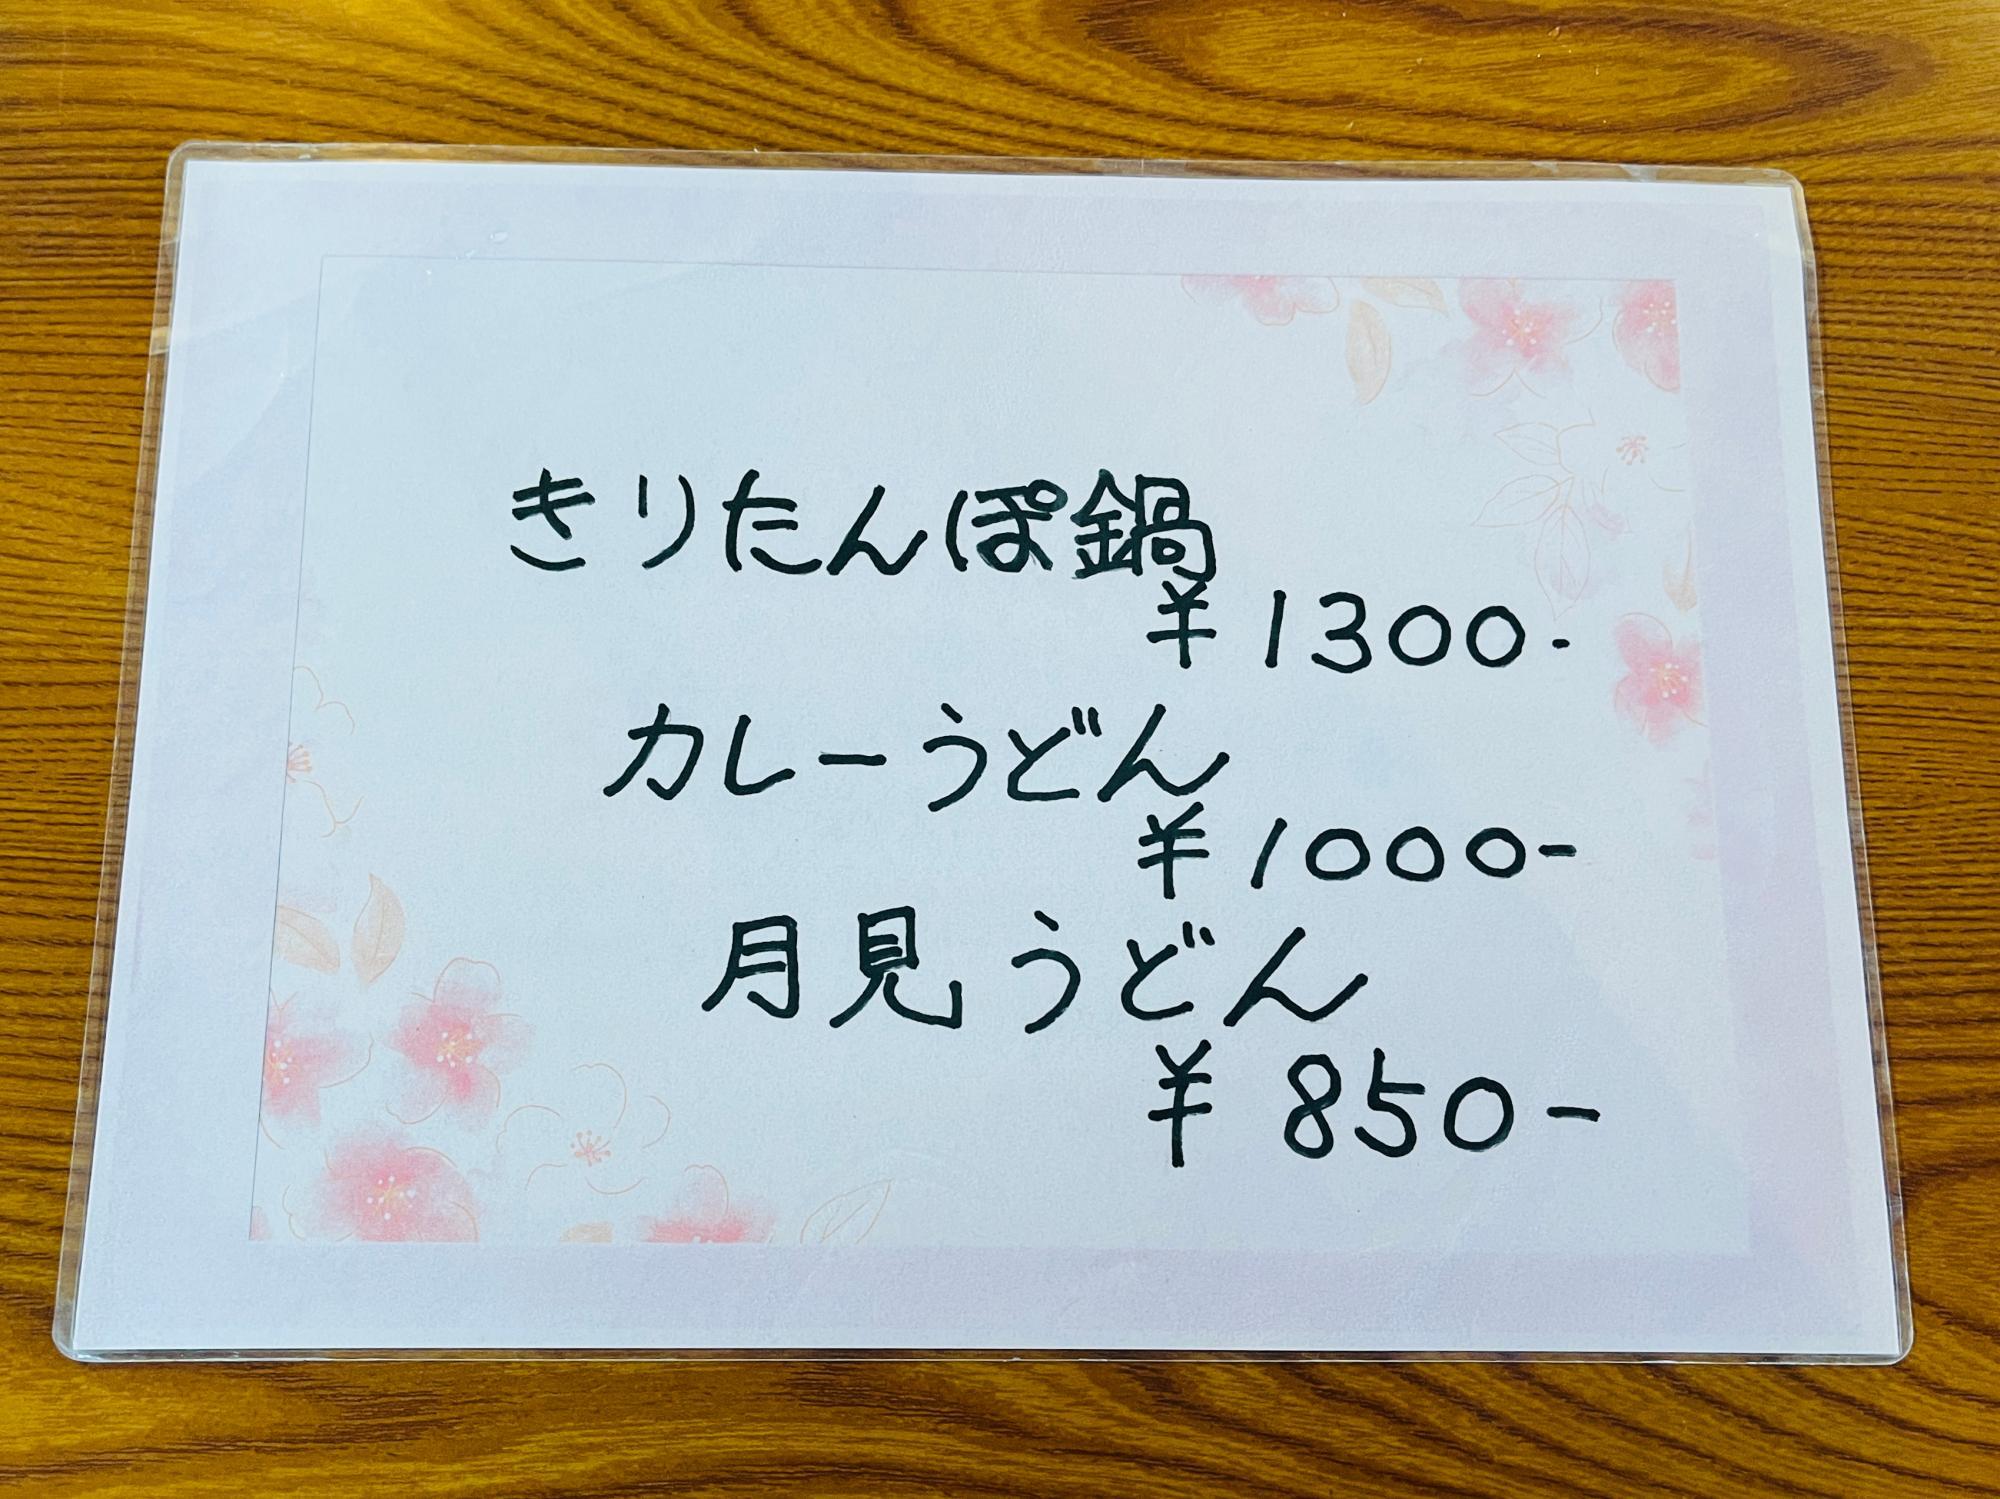 きりたんぽ鍋
¥1300-
カレーうどん
¥1000-
月見うどん
¥850-